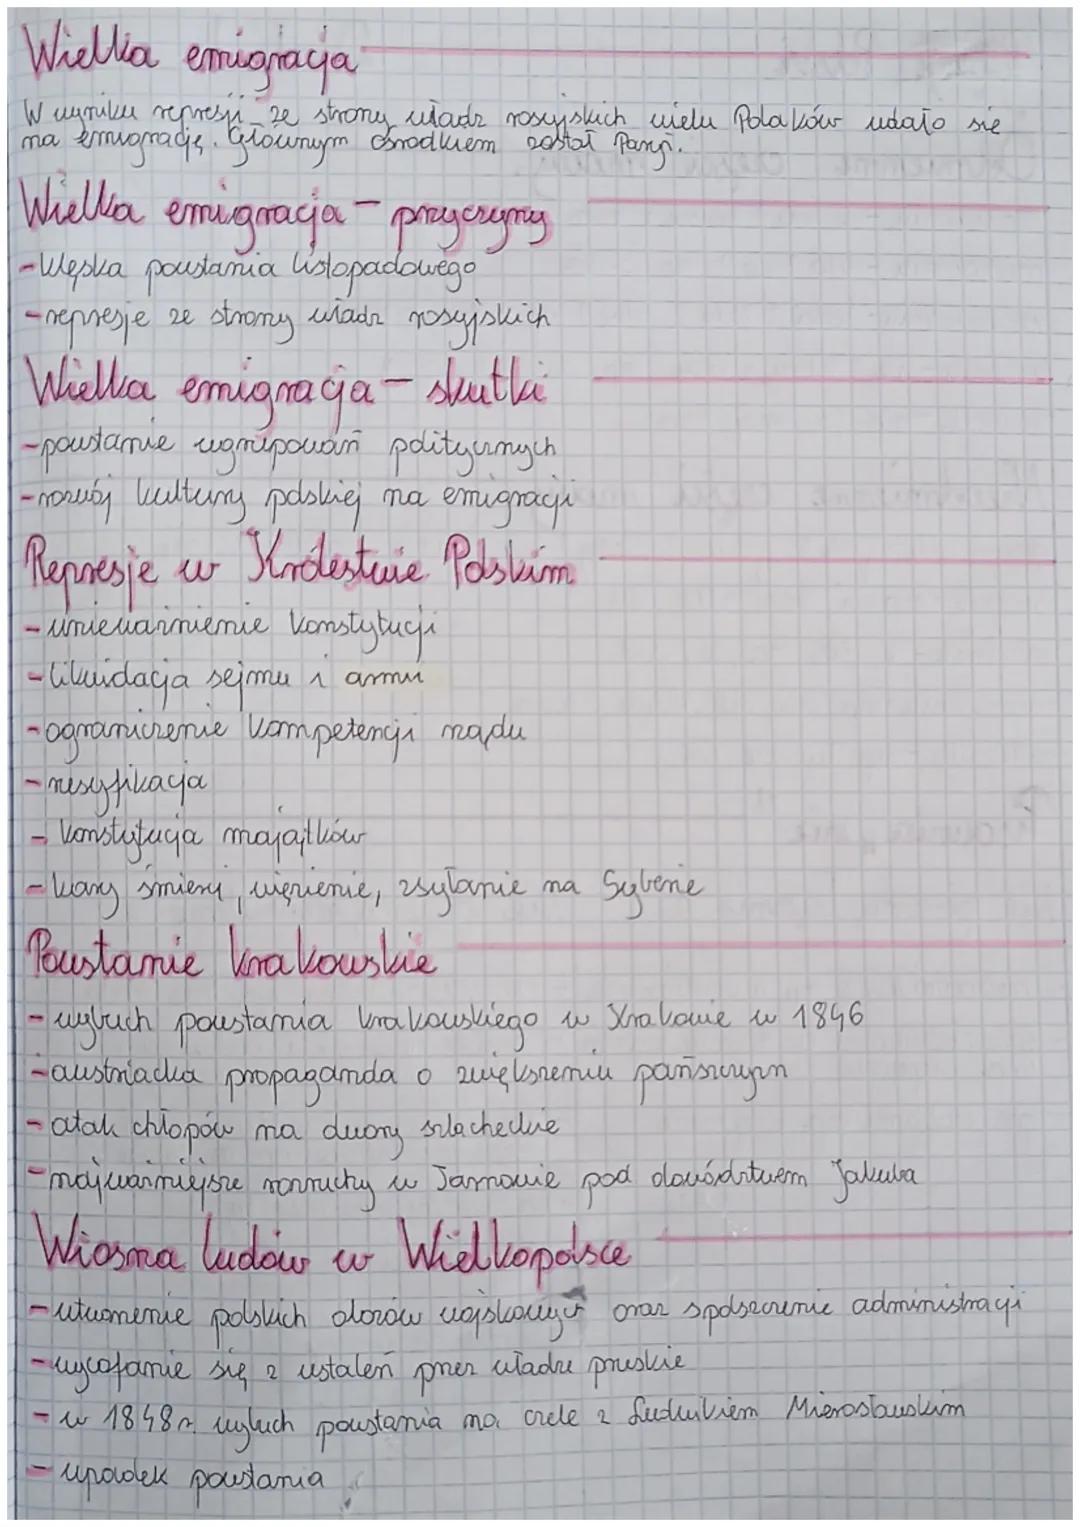 Wielka emigracja
W wyniku represji ze strony władz rosyjskich wielu Polaków udało się
na emigrację. Głównym ośrodkiem został Paryż.
Wielka emigracja - przyczyny
- klęska powstania listopadowego
- represje ze strony władz rosyjskich
Wielka emigracja - skutki
- powstanie ugrupowań politycznych
- rozwój kultury polskiej na emigracji
Represje w Królestwie Polskim
- unieważnienie konstytucji
- likwidacja sejmu i armii
- ograniczenie kompetencji rządu
- rusyfikacja
- konstytucja majątków
- kary śmierci, więzienie, zsyłanie na Syberie
Powstanie krakowskie
- wybuch powstania krakowskiego w Krakowie w 1846
- austriacka propaganda o zwiększeniu pańszczyzn
- atak chłopów na dwory szlacheckie
- najważniejsze rozruchy w Tarnowie pod dowództwem Jakuba
Wiosna ludów w Wielkopolsce
- utworzenie polskich obozów wojskowych oraz spolszczenie administracji
- wycofanie się z ustaleń przez władze pruskie
- w 1848r. wybuch powstania na czele z Ludwikiem Mierosławskim
- upadek powstania